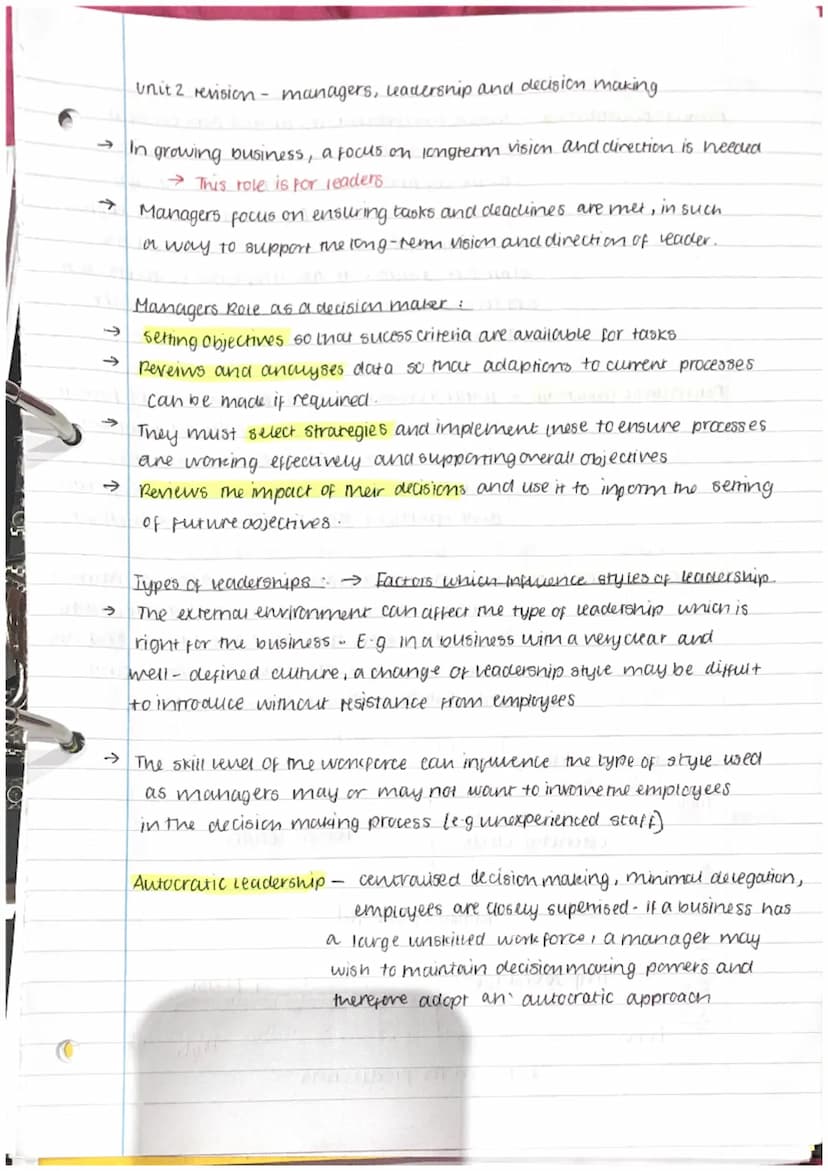 Unit 2 revision - managers, leadership and decision making
→ In growing business, a focus on longterm vision and direction is needed
→ This role is for leaders
→ Managers focus on ensuring tasks and deadlines are met, in such
a way to support the long-term vision and direction of leader.
Managers Role as a decision maker:
→ Setting objectives so that sucess criteria are available for tasks
→ Reveiws and analyses data so that adaptions to current processes
can be made if required.
→ They must select strategies and implement these to ensure processes
are working effectively and supporting overall objectives
→ Reviews the impact of their decisions and use it to inform the setting
of future objectives.
Types of leaderships: → Factors which influence styles of leadership
→ The external environment can affect the type of leadership which is
right for the business - E.g in a business with a very clear and
well-defined culture, a change of leadership style may be diffult
to introduce without resistance from employees
→ The skill level of the workforce can influence the type of style used
as managers may or may not want to involve the employees
in the decision making process (e.g unexperienced staff)
Autocratic Leadership - centralised decision making, minimal delegation,
employees are closely supervised - if a business has
a large unskilled workforce, a manager may
wish to maintain decision making powers and
therefore adopt an autocratic approach